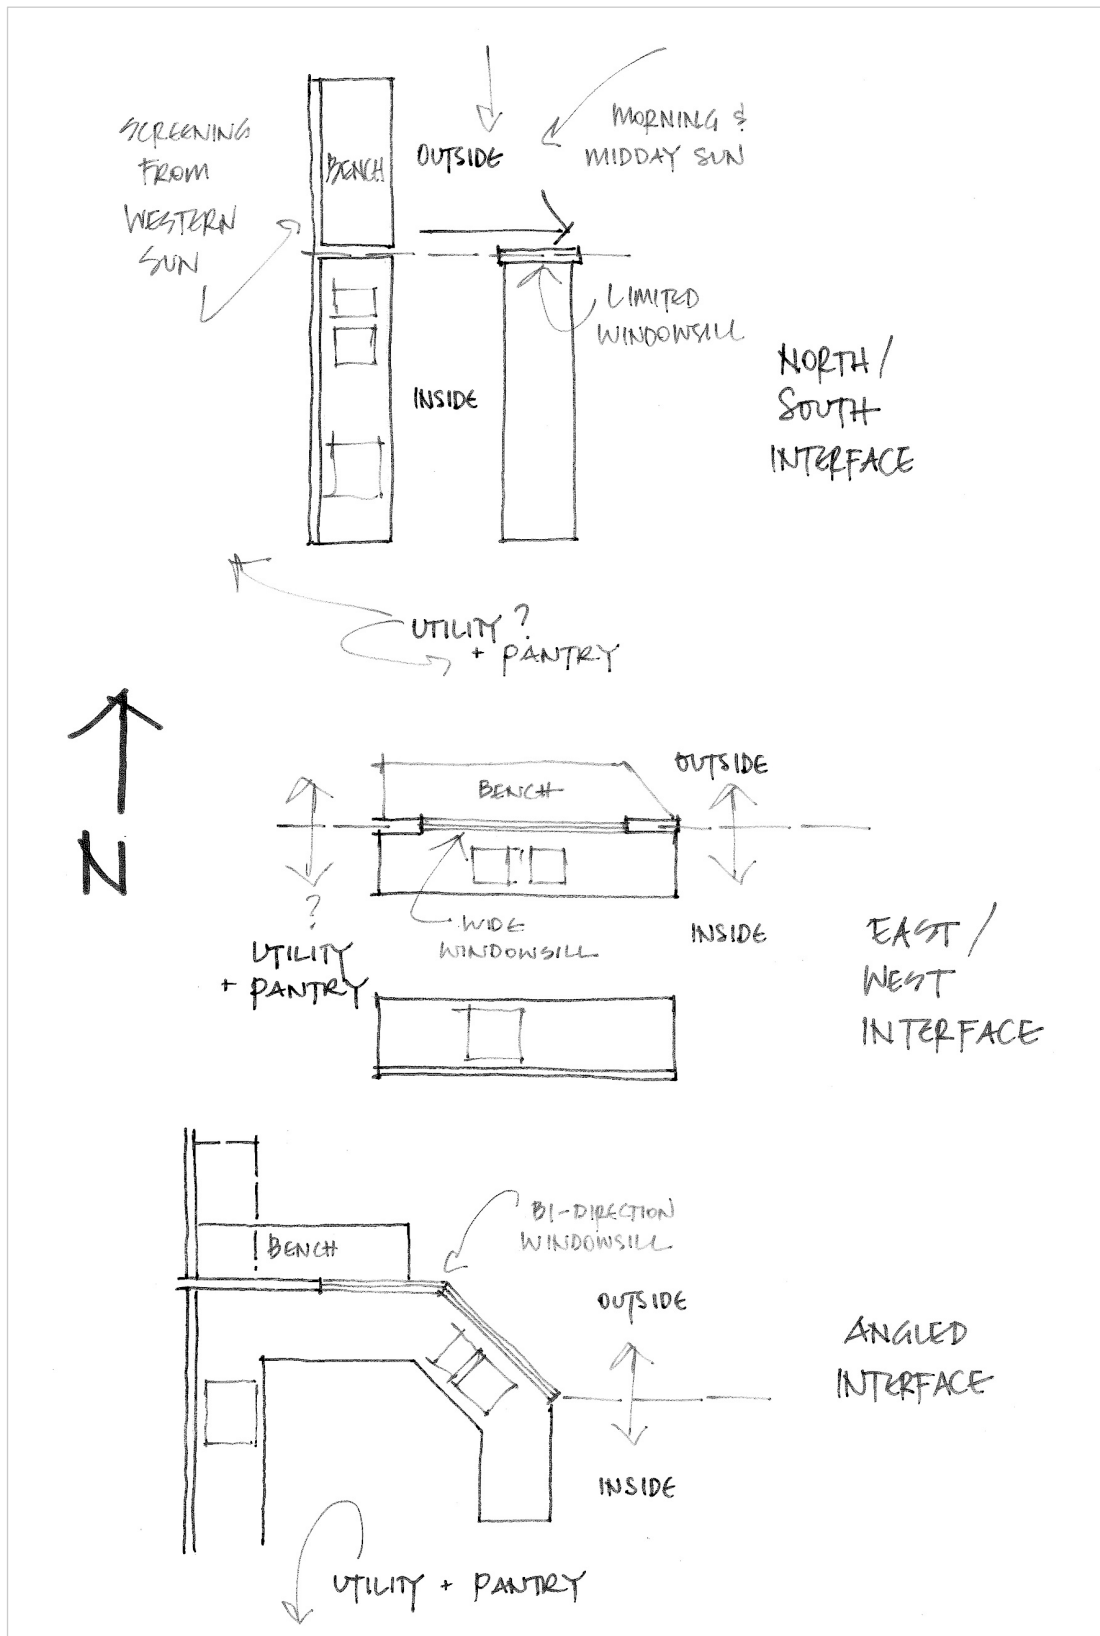 SCREENING
FROM
WESTERN
SUN
BENCH
OUTSIDE
MORNING &
MIDDAY SUN
LIMITED
WINDOWSILL
INSIDE
NORTH /
SOUTH
INTERFACE
UTILITY ?
+ PANTRY
N
BENCH
OUTSIDE
?
UTILITY
+ PANTRY
WIDE
WINDOWSILL
INSIDE
EAST /
WEST
INTERFACE
BENCH
BI-DIRECTION
WINDOWSILL
OUTSIDE
ANGLED
INTERFACE
INSIDE
UTILITY + PANTRY